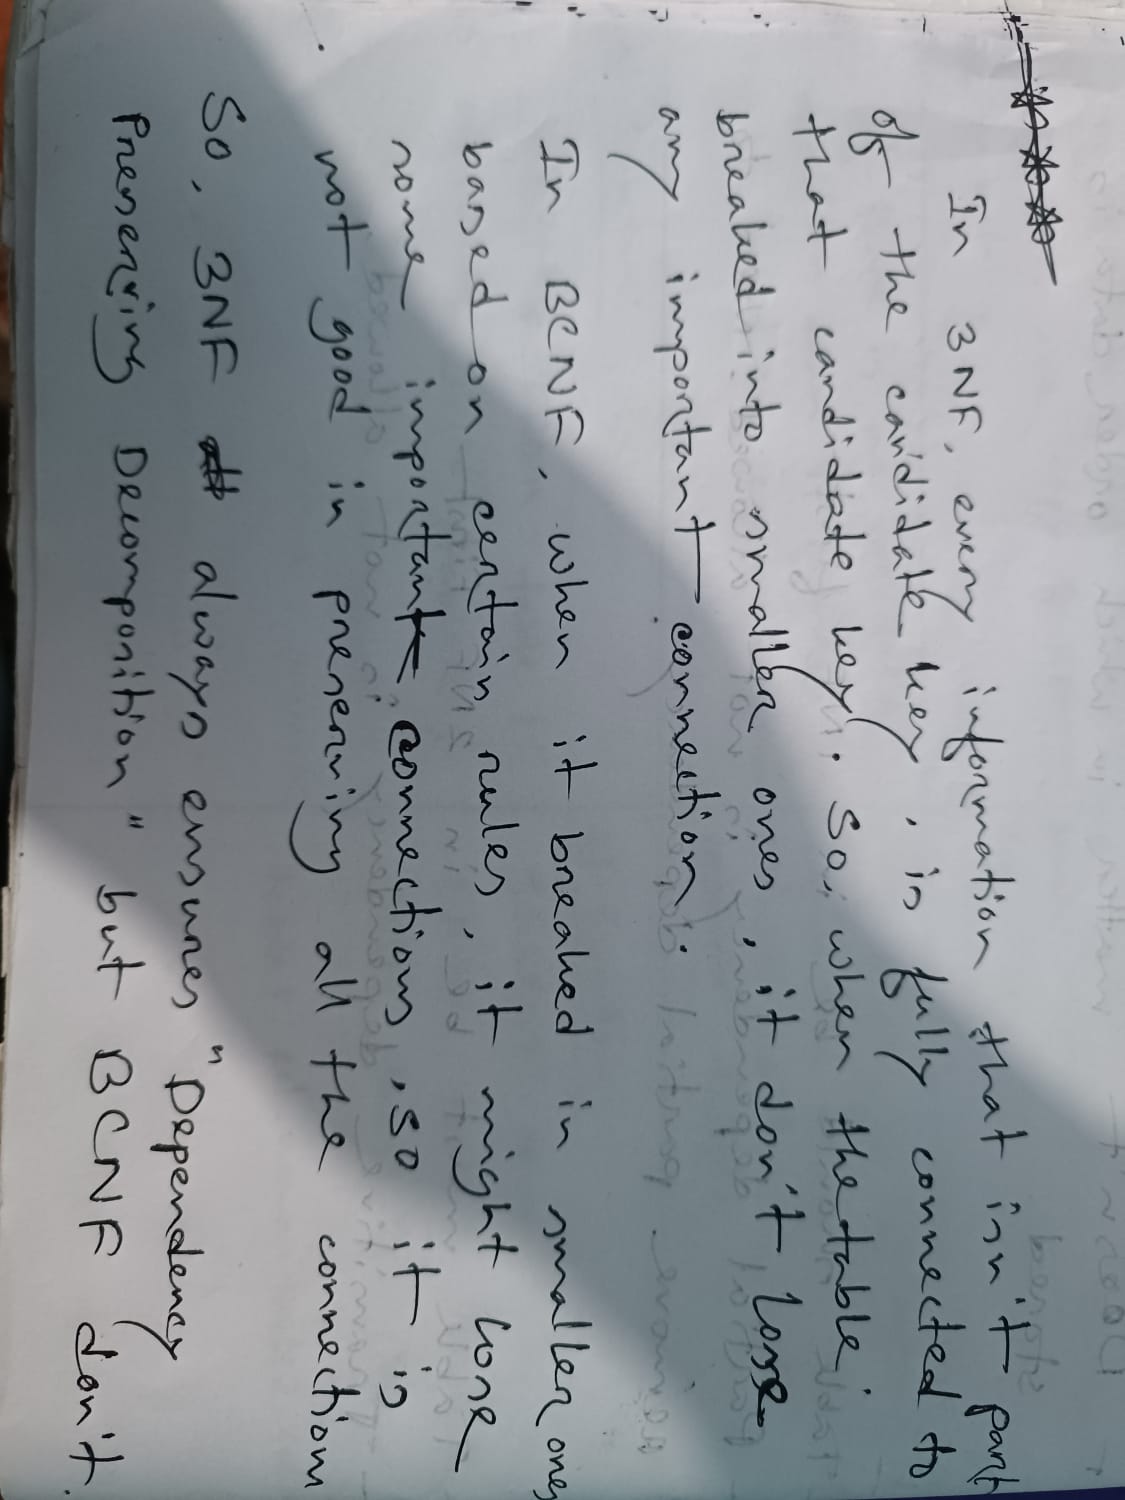 In 3NF, every information that isn't part
of the candidate key, is fully connected to
that candidate key. So, when the table
breaked into smaller ones, it don't lose
any important connection.
In BCNF, when it breaked in smaller ones
based on certain rules, it might lose
some important connections, so it is
not good in preserving all the connections
So, 3NF always ensures "Dependency
Preserving Decomposition" but BCNF don't.